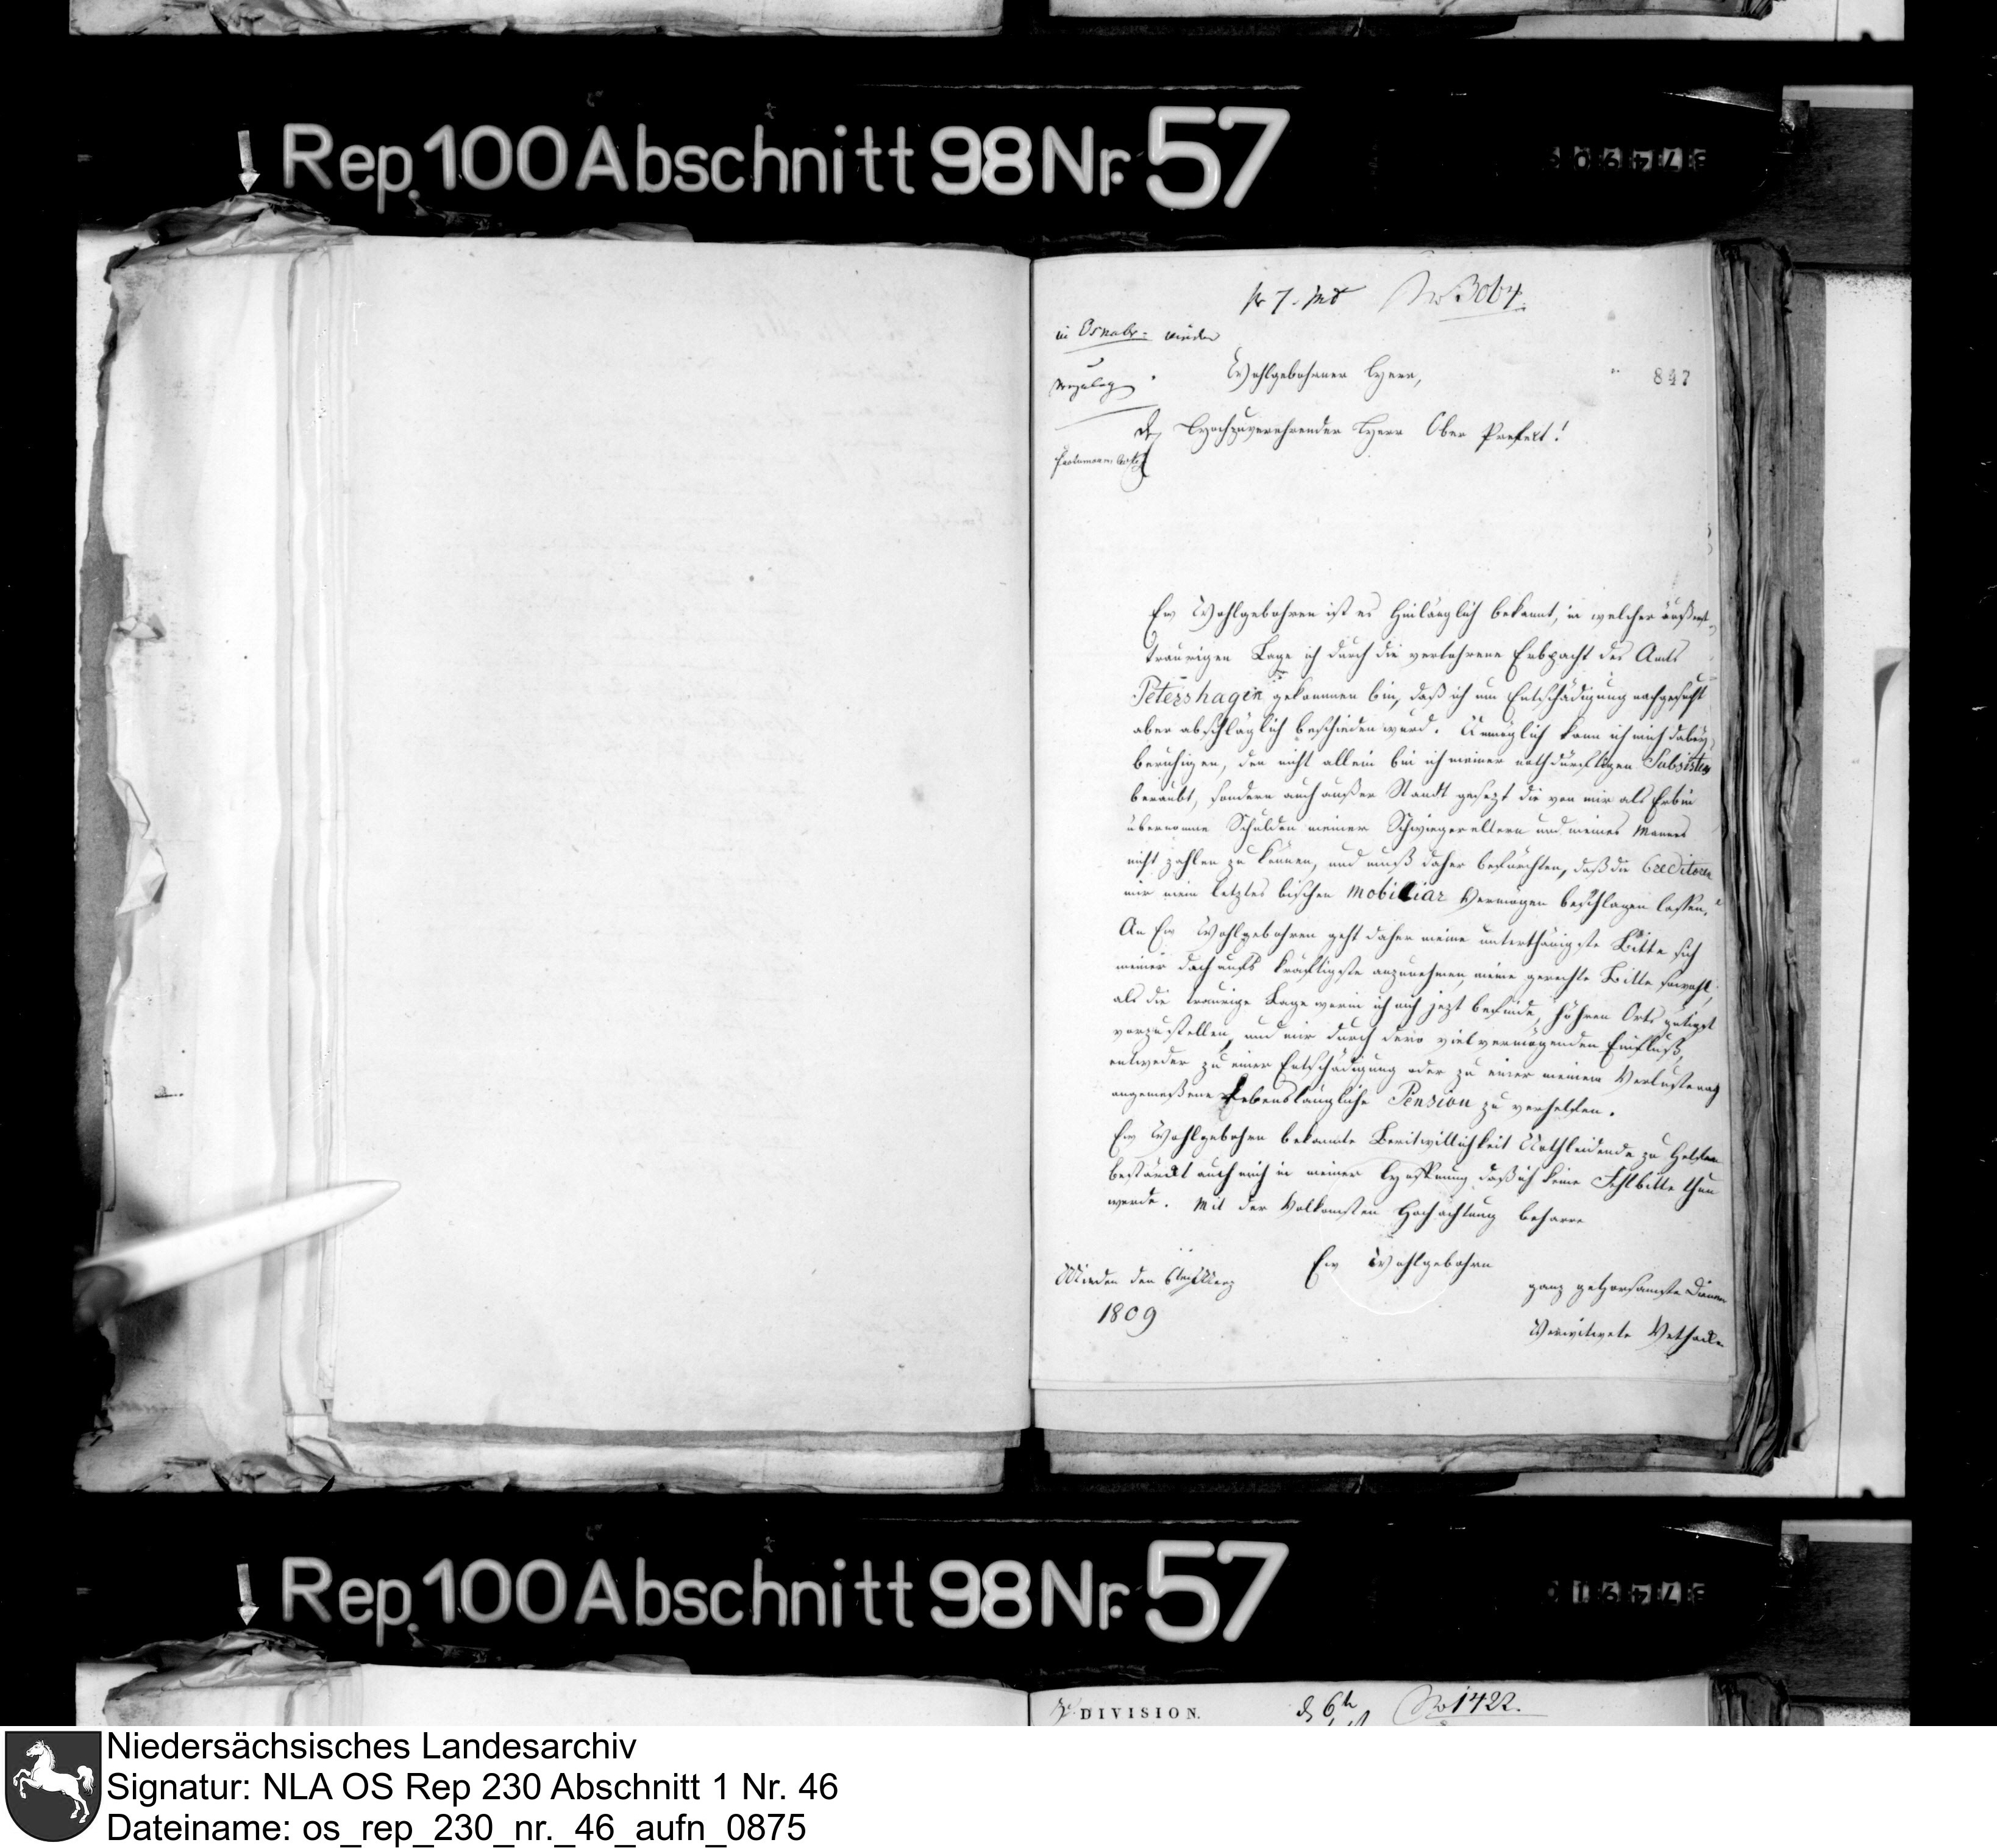 Rep. 100 Abschnitt 98 Nr. 57
No 3064.
in Osnabr:
Wohlgebohrner Herr,
847
Hochzuverehrender Herr Ober Prefekt!
Ew Wohlgebohren ist es hinlänglich bekannt, in welcher äußerst
traurigen Lage ich durch die verlohrene Erbpacht des Amts
Petershagen gekommen bin, daß ich um Entschädigung nachgesucht
aber abschläglich beschieden wurd. Unmöglich kann ich mich dabey
beruhigen, den nicht allein bin ich meiner nothdürftigen Subsistenz
beraubt, sondern auch außer Standt gesezt die von mir als Erbin
übernomne Schulden meiner Schwiegereltern und meines Mannes
nicht zahlen zu können, und muß daher befürchten, daß die Creditoren
mir mein letztes bischen Mobiliar Vermögen beschlagen lassen.
An Ew Wohlgebohren geht daher meine unterthänigste Bitte sich
meiner doch aufs kräftigste anzunehmen, meine gerechte Bitte sowohl,
als die traurige Lage worin ich mich jezt befinde, höhren Orts gütigst
vorzustellen, und mir durch dero vielvermögenden Einfluß,
entweder zu einer Entschädigung oder zu einer meinem Verluste
angemeßene Lebenslängliche Pension zu verhelfen.
Ew Wohlgebohrn bekannte Bereitwillichkeit Nothleidende zu helfen
bestärckt auch mich in meiner Hoffnung daß ich keine Fehlbitte thun
werde. Mit der Volkomsten Hochachtung beharre
Ew Wohlgebohrn
Minden den 6ten Merz
1809
ganz gehorsamste Dienerin
Verwitwete Vethacke
Rep. 100 Abschnitt 98 Nr. 57
DIVISION.
No 1422.
Niedersächsisches Landesarchiv
Signatur: NLA OS Rep 230 Abschnitt 1 Nr. 46
Dateiname: os_rep_230_nr._46_aufn_0875